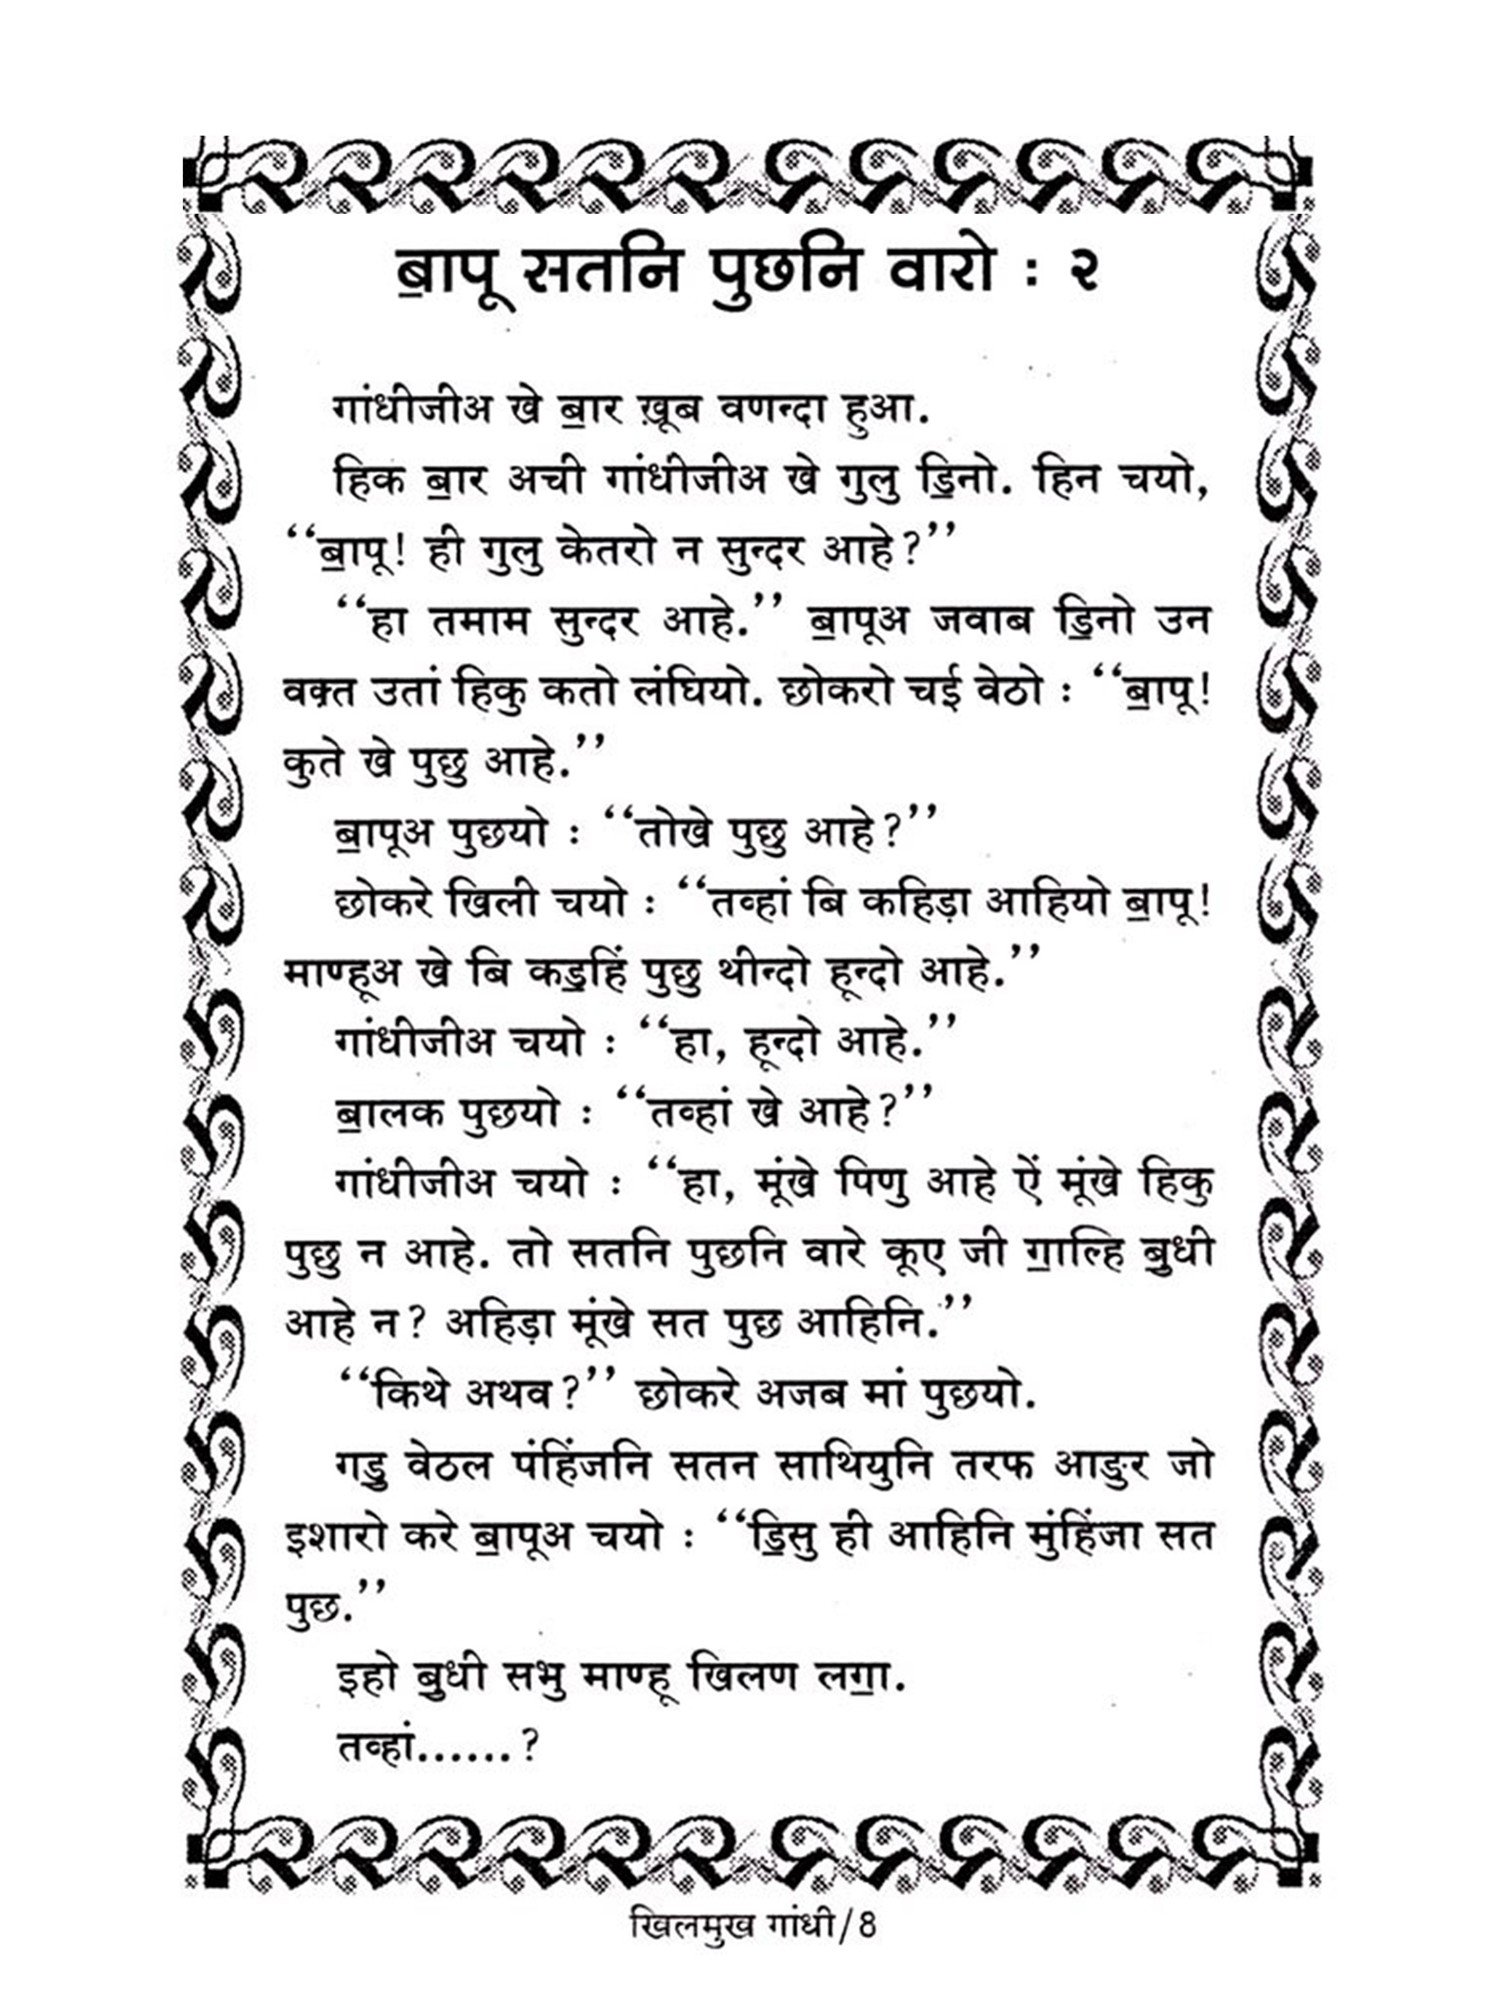 ॿापू सतनि पुछनि वारो : २
गांधीजीअ खे ॿार ख़ूब वणन्दा हुआ.
हिक ॿार अची गांधीजीअ खे गुलु ॾिनो. हिन चयो,
‘‘ॿापू! ही गुलु केतरो न सुन्दर आहे?’’
‘‘हा तमाम सुन्दर आहे.’’ ॿापूअ जवाब ॾिनो उन
वक़्त उतां हिकु कतो लंघियो. छोकरो चई वेठो : ‘‘ॿापू!
कुते खे पुछु आहे.’’
ॿापूअ पुछयो : ‘‘तोखे पुछु आहे?’’
छोकरे खिली चयो : ‘‘तव्हां बि कहिड़ा आहियो ॿापू!
माण्हूअ खे बि कॾहिं पुछु थीन्दो हून्दो आहे.’’
गांधीजीअ चयो : ‘‘हा, हून्दो आहे.’’
ॿालक पुछयो : ‘‘तव्हां खे आहे?’’
गांधीजीअ चयो : ‘‘हा, मूंखे पिणु आहे ऐं मूंखे हिकु
पुछु न आहे. तो सतनि पुछनि वारे कूए जी ॻाल्हि ॿुधी
आहे न? अहिड़ा मूंखे सत पुछ आहिनि.’’
‘‘किथे अथव?’’ छोकरे अजब मां पुछयो.
गॾु वेठल पंहिंजनि सतन साथियुनि तरफ आङुर जो
इशारो करे ॿापूअ चयो : ‘‘ॾिसु ही आहिनि मुंहिंजा सत
पुछ.’’
इहो ॿुधी सभु माण्हू खिलण लॻा.
तव्हां......?
खिलमुख गांधी/8